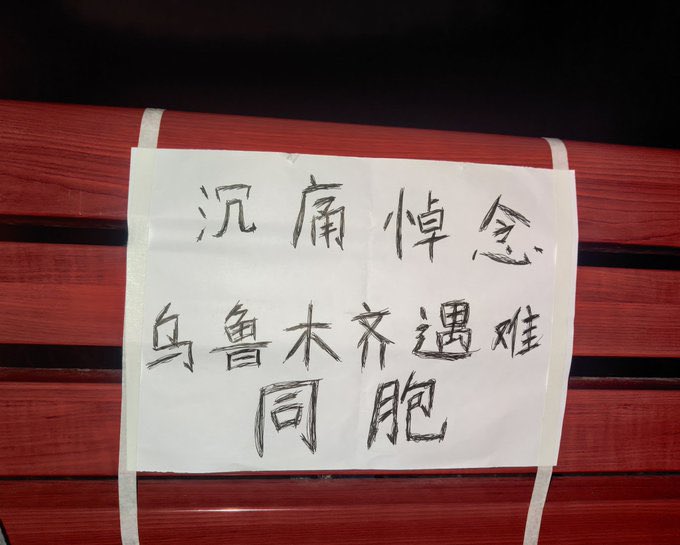 沉痛悼念
乌鲁木齐遇难
同胞